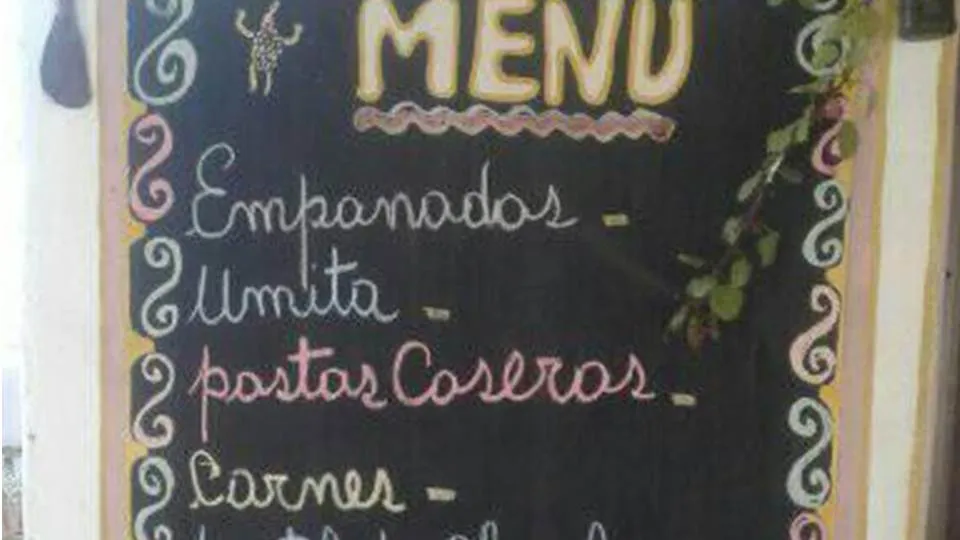 MENU
Empanadas -
Umita -
pastas Caseras -
Carnes -